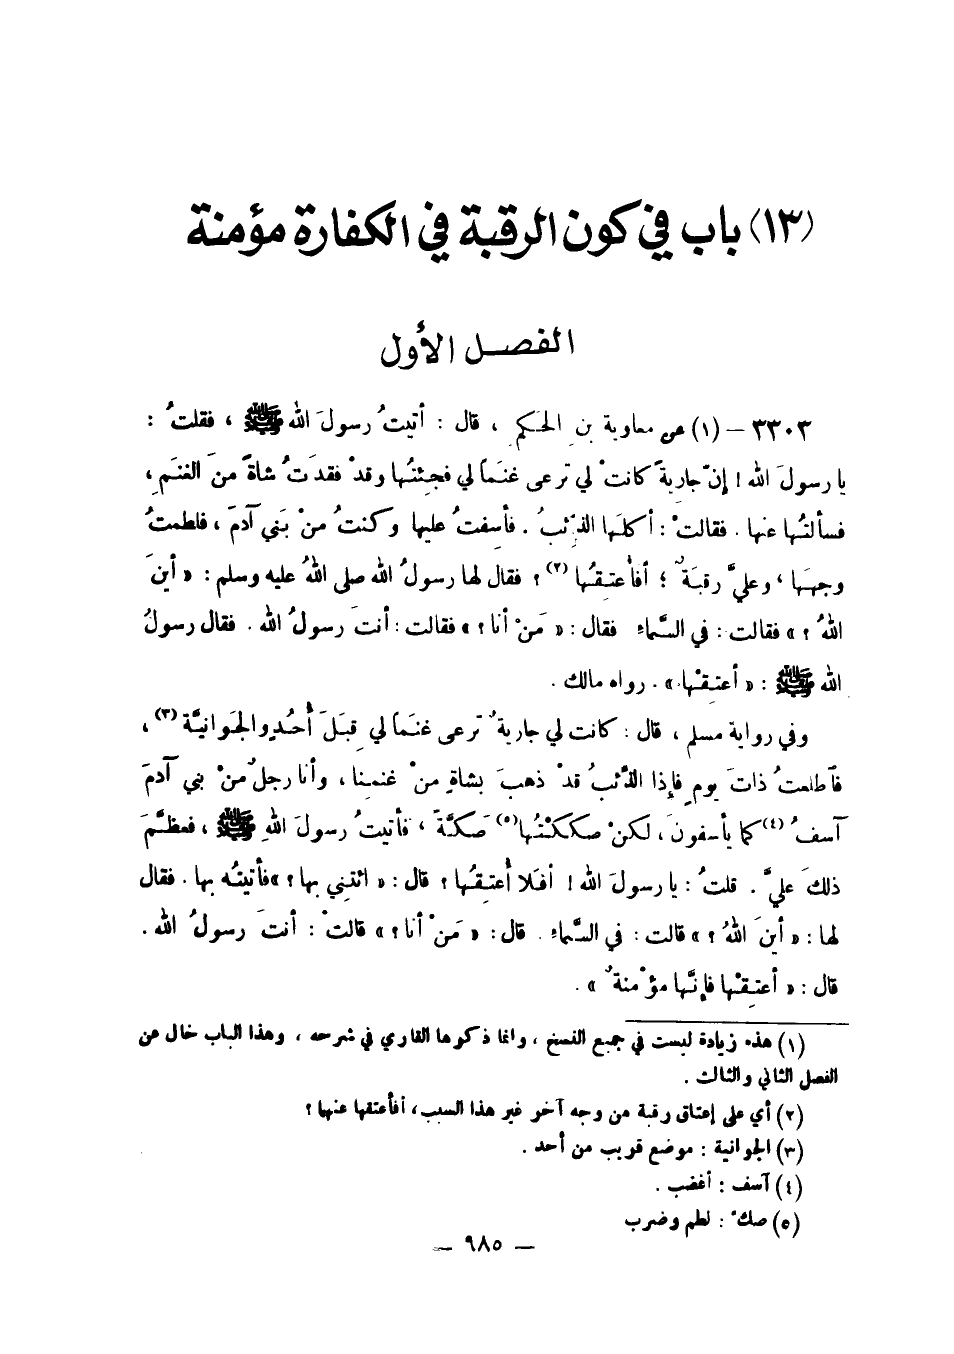 (١٣) باب في كون الرقبة في الكفارة مؤمنة
الفصل الأول
٣٣٠٣ – (١) عن معاوية بنِ الحَكَمِ ، قال : أتيتُ رسولَ الله ﷺ ، فقلتُ :
يا رسولَ الله ! إنّ جاريةً كانتْ لي ترعى غنَماً لي فجِئتُها وقدْ فقدَتْ شاةً منَ الغنَمِ ،
فسألتُها عنها . فقالتْ : أكلَها الذِّئبُ . فأسِفتُ عليها وكنتُ منْ بَني آدمَ ، فلطمتُ
وجهَها ، وعليَّ رقبَةٌ ؛ أفأعتِقُها (٢) ؟ فقال لها رسولُ الله صلى اللهُ عليه وسلم : « أينَ
اللهُ ؟ » فقالت : في السَّماءِ فقال : « مَنْ أنا ؟ » فقالت : أنتَ رسولُ الله . فقال رسولُ
الله ﷺ : « أعتِقْها » . رواه مالك .
وفي رواية مسلم ، قال : كانت لي جاريةٌ ترعى غنَماً لي قِبَلَ أُحُدٍ والجَوانيَّة (٣) ،
فاَطلعتُ ذاتَ يومٍ فإِذا الذِّئبُ قدْ ذهبَ بشاةٍ منْ غنمِنا ، وأنا رجلٌ منْ بني آدمَ
آسفُ (٤) كما يأسفونَ ، لكنْ صككْتُها (٥) صَكَّةً ، فأتيتُ رسولَ اللهِ ﷺ ، فعظَّمَ
ذلكَ عليَّ . قلتُ : يا رسولَ الله ! أفلا أُعتِقُها ؟ قال : « ائتني بها ؟ » فأتيتُه بها . فقال
لها : « أينَ اللهُ ؟ » قالت : في السَّماءِ . قال : « مَنْ أنا ؟ » قالتْ : أنتَ رسولُ الله .
قال : « أعتِقْها فإنَّها مؤْمنةٌ » .
(١) هذه زيادة ليست في جميع النسخ ، وانما ذكرها القاري في شرحه ، وهذا الباب خال من
الفصل الثاني والثالث .
(٢) أي على إعتاق رقبة من وجه آخر غير هذا السبب ، أفأعتقها عنها ؟
(٣) الجوانية : موضع قريب من أحد .
(٤) آسف : أغضب .
(٥) صكّ : لطم وضرب
– ٩٨٥ –